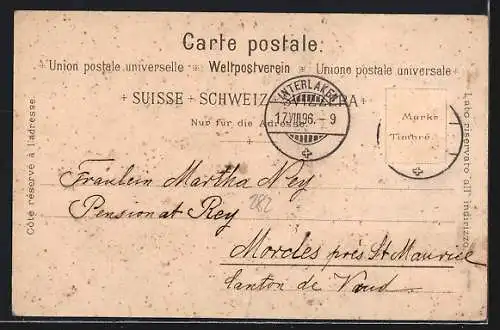 Carte postale:
Union postale universelle Weltpostverein Unione postale universale
SUISSE + SCHWEIZ + SVIZZERA
Nur für die Adresse.
INTERLAKEN
17.VIII.96. - 9
Marke
Timbre
Côté réservé à l'adresse.
Lato riservato all' indirizzo.
Fräulein Martha Ney
Pensionat Rey
282
Morcles près St Maurice
Canton de Vaud